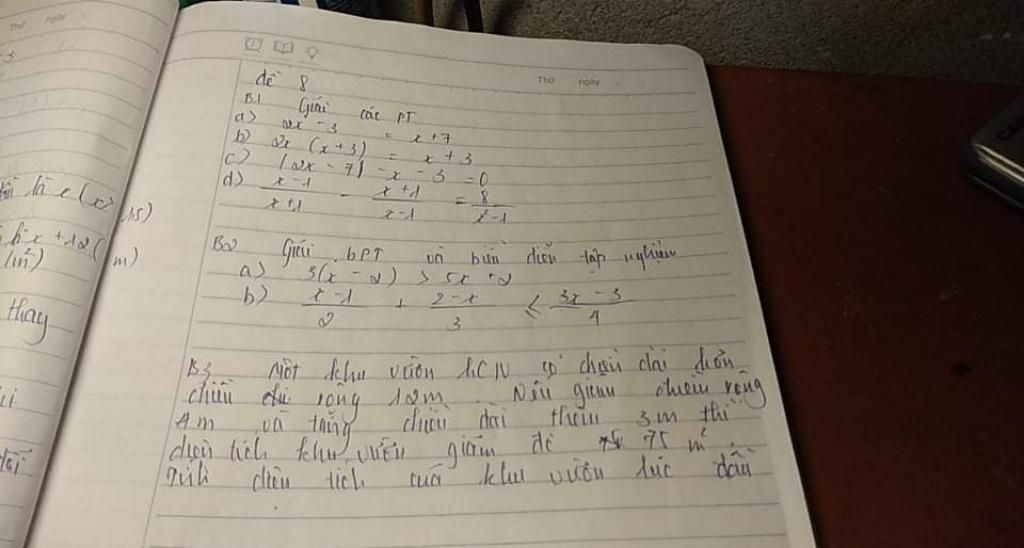 Thứ ngày
Thứ ngày
đề 8
B.1 Giải các PT
a) 2x - 3 = x + 7
b) 2x (x + 3) = x + 3
c) |2x - 7| - x - 3 = 0
d) x - 1 / x + 1 - x + 1 / x - 1 = 8 / x² - 1
B2 Giải bPT và biểu diễn tập nghiệm
a) 3(x - 2) > 5x + 2
b) x - 1 / 2 + 2 - x / 3 ≤ 3x - 3 / 4
B3 Một khu vườn hCN có chiều dài hơn
chiều rộng 12m. Nếu giảm chiều rộng
4m và tăng chiều dài thêm 3m thì
diện tích khu vườn giảm đi 75 m²
tính diện tích của khu vườn lúc đầu
15)
m)
thay